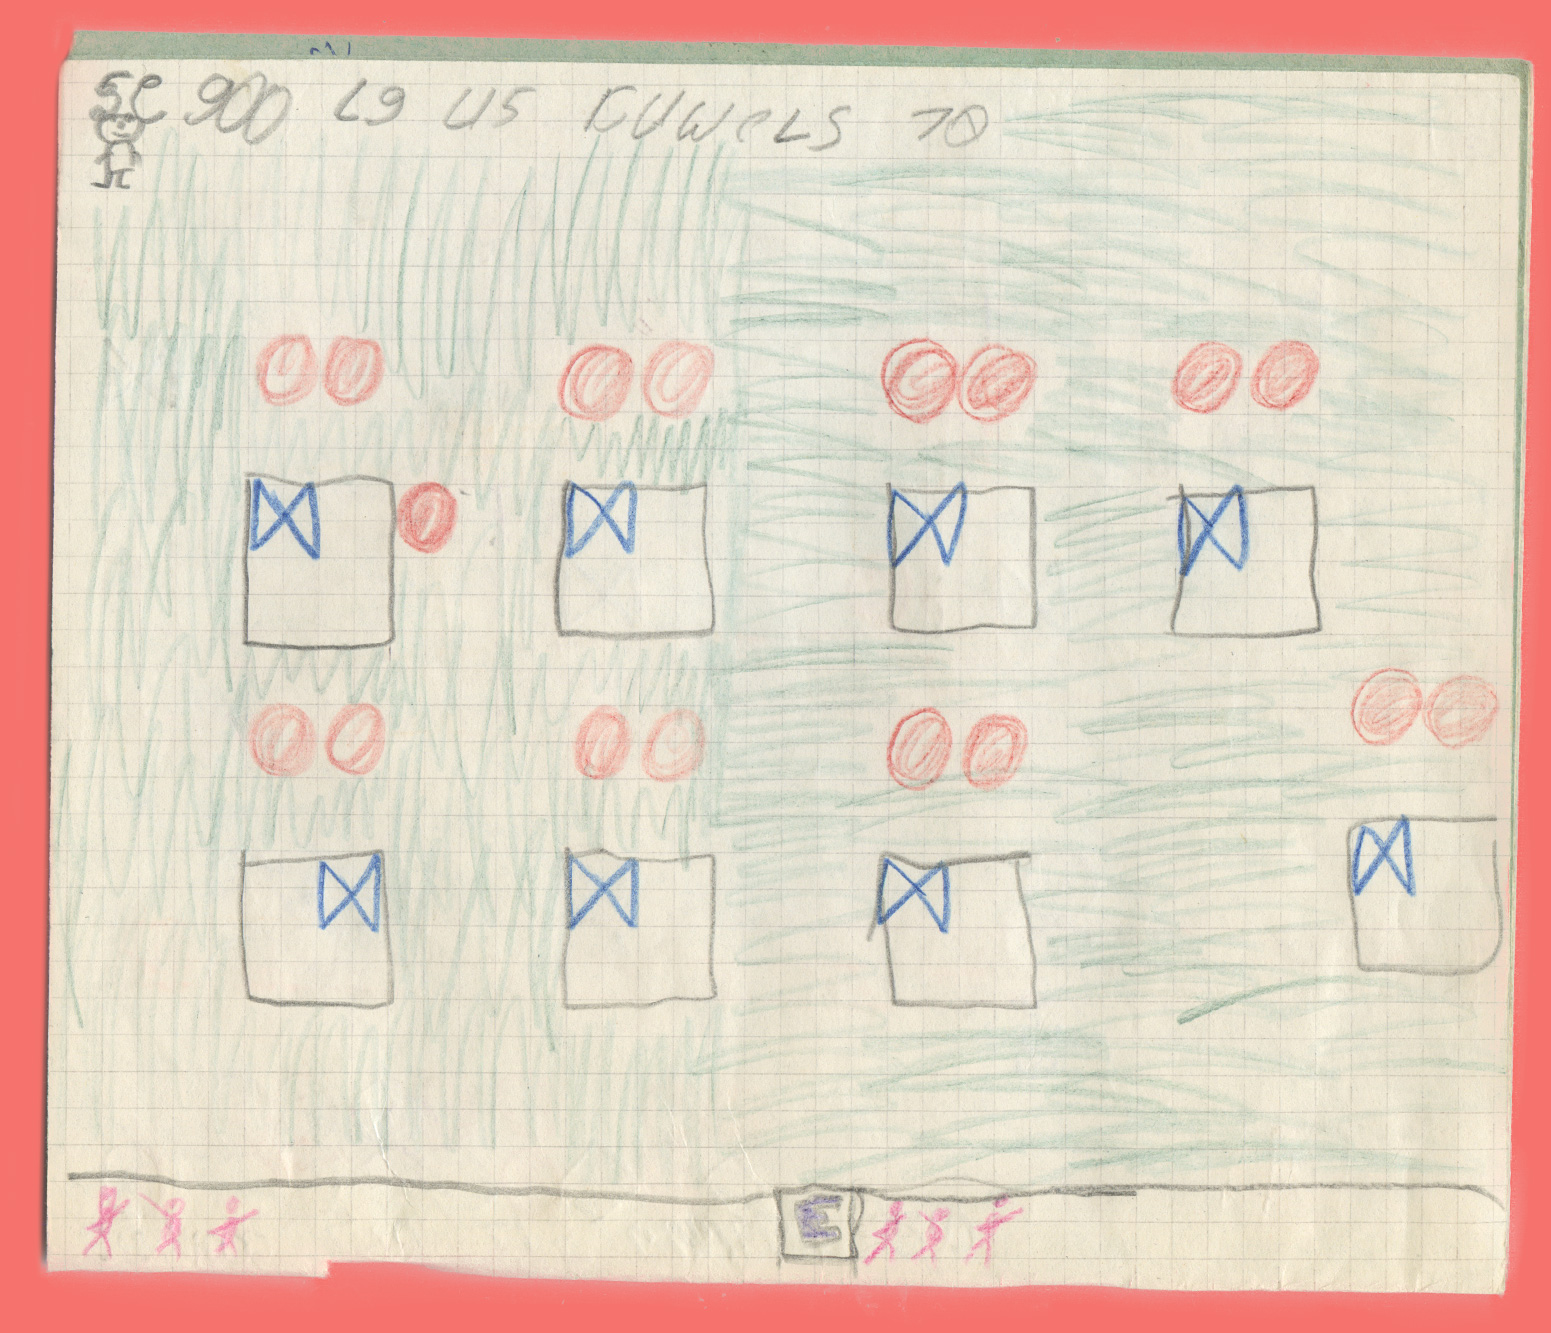 SC 900 L9 US KUWELS 10
E